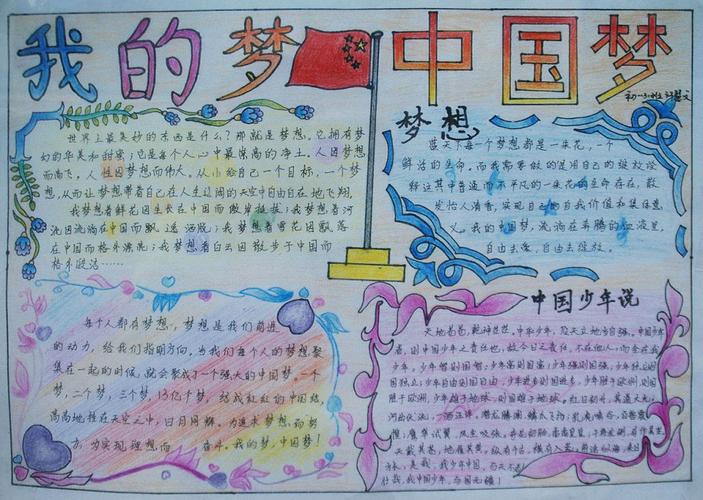 我的梦 中国梦
世界上最美妙的东西是什么？那就是梦想，它拥有梦
幻的华美和甜蜜；它是每个人心中最崇高的净土。人因梦想
而高飞，人性因梦想而伟大。从小给自己一个目标，一个梦
想，从而让梦想带着自己在人生辽阔的天空中自由自在地飞翔。
我梦想着鲜花因生长在中国而傲岸挺拔；我梦想着河
流因流淌在中国而飘逸洒脱；我梦想着雪花因飘落
在中国而格外漂流；我梦想着白云因散步于中国而
格外
梦想
蓝天下每个梦想都是一朵花，一个
鲜活的生命。而我需要做的是用自己的绽放诠
释这其中普通而不平凡的一朵花的生命存在，散
发怡人清香，实现自己的自我价值和集体意
义。我的中国梦，流淌在奔腾的血液里，
自由去爱，自由去绽放。
每个人都有梦想，梦想是我们前进
的动力，给我们指明方向。当我们每个人的梦想聚
集在一起的时候，就会聚成了一个强大的中国梦。一个
梦，二个梦，三个梦，13亿个梦，结成红红的中国结，
高高地挂在天空之中，日月同辉。为追求梦想而努
力，为实现理想而 奋斗。我的梦，中国梦！
中国少年说
天地苍苍，乾坤茫茫，中华少年，顶天立地当自强。中国少年
者，则中国少年之责任也，故今日之责任，不在他人，而全在我
少年。少年智则国智，少年富则国富，少年强则国强，少年独立则
国独立，少年自由则国自由，少年进步则国进步，少年胜于欧洲，则国
胜于欧洲，少年雄于地球，则国雄于地球。红日初升，其道大光，
河出伏流，一泻汪洋，潜龙腾渊，鳞爪飞扬，乳虎啸谷，百兽震
惶，鹰隼试翼，风尘吸张，奇花初胎，矞矞皇皇，干将发硎，有作其芒，
天戴其苍，地履其黄，纵有千古，横有八荒，前途似海，来日
方长，美哉，我少年中国，与天不老！
壮哉，我中国少年，与国无疆！